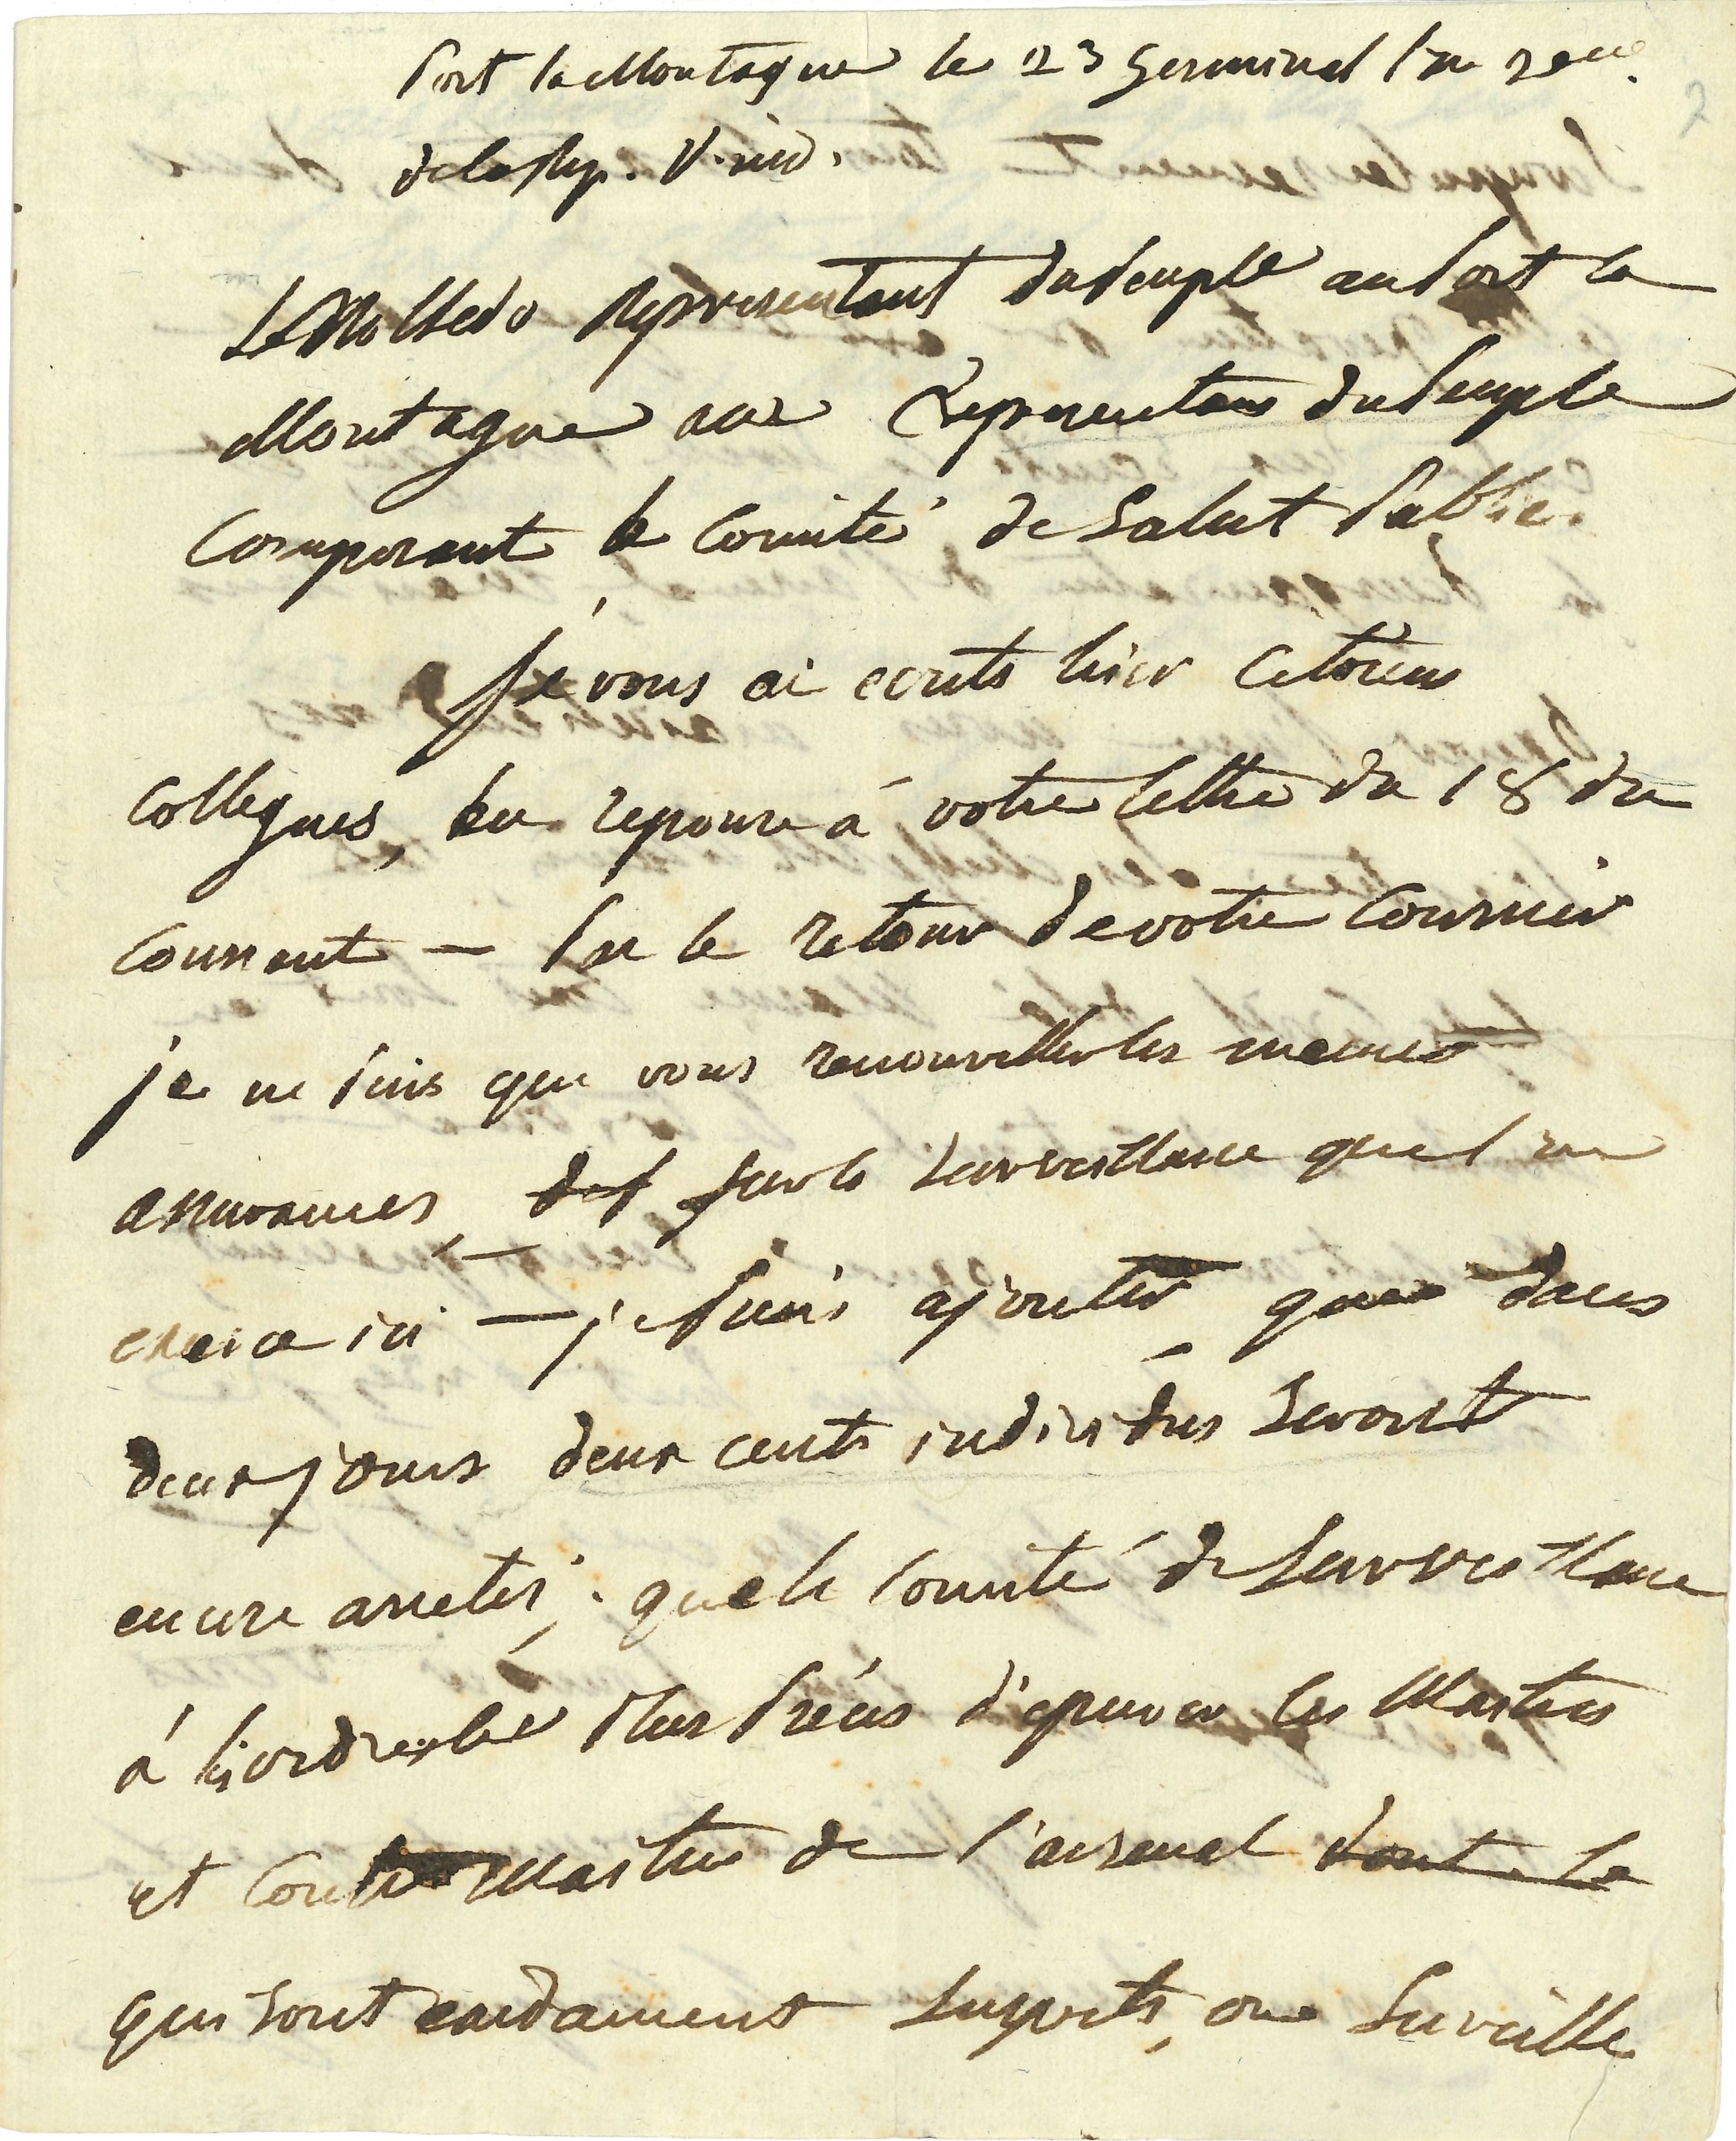 Port la Montagne le 23 Germinal l'an 2eme.
de la Rep. 
Le Moltedo Representant du Peuple au Port la
Montagne aux Representans du Peuple
Composant le Comité de Salut Public.
Je vous ai ecrits hier Citoiens
Collegues, en reponse à votre lettre du 18 du
Courrent — Par le retour de votre Courrier
je ne puis que vous renouveller les memes
assurances, des sur la Surveillance que l'on
exerce ici — je puis ajouter que dans
deux jours deux cents individus Seront
encore arretés; que le Comité de Surveillance
à l'ordre le plus précis d'epurer les Maitres
et Contre Maitres de l'arsenal dont le
qui sont evidament Suspects, on Surveille